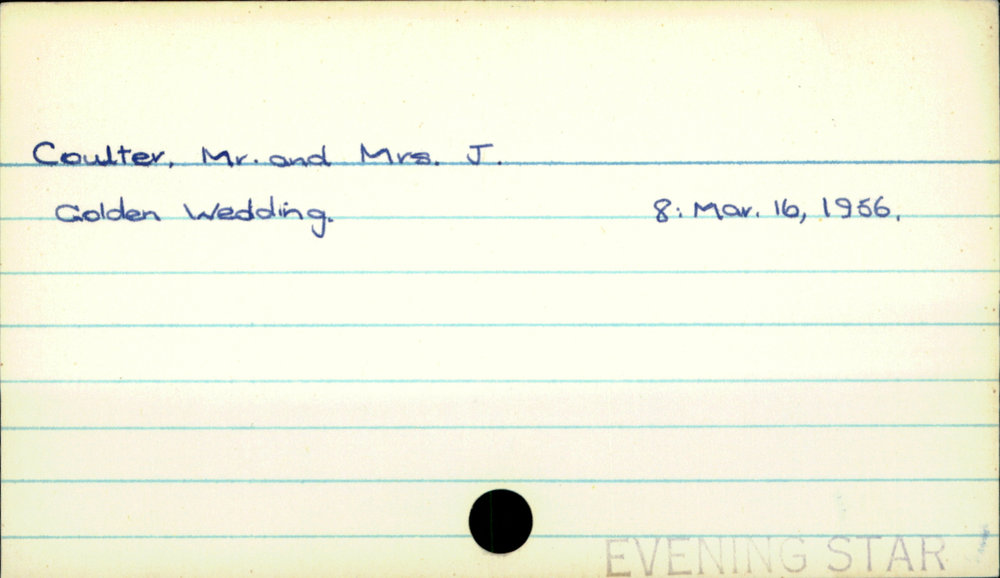 Coulter, Mr. and Mrs. J.
Golden Wedding. 8: Mar. 16, 1956.
EVENING STAR